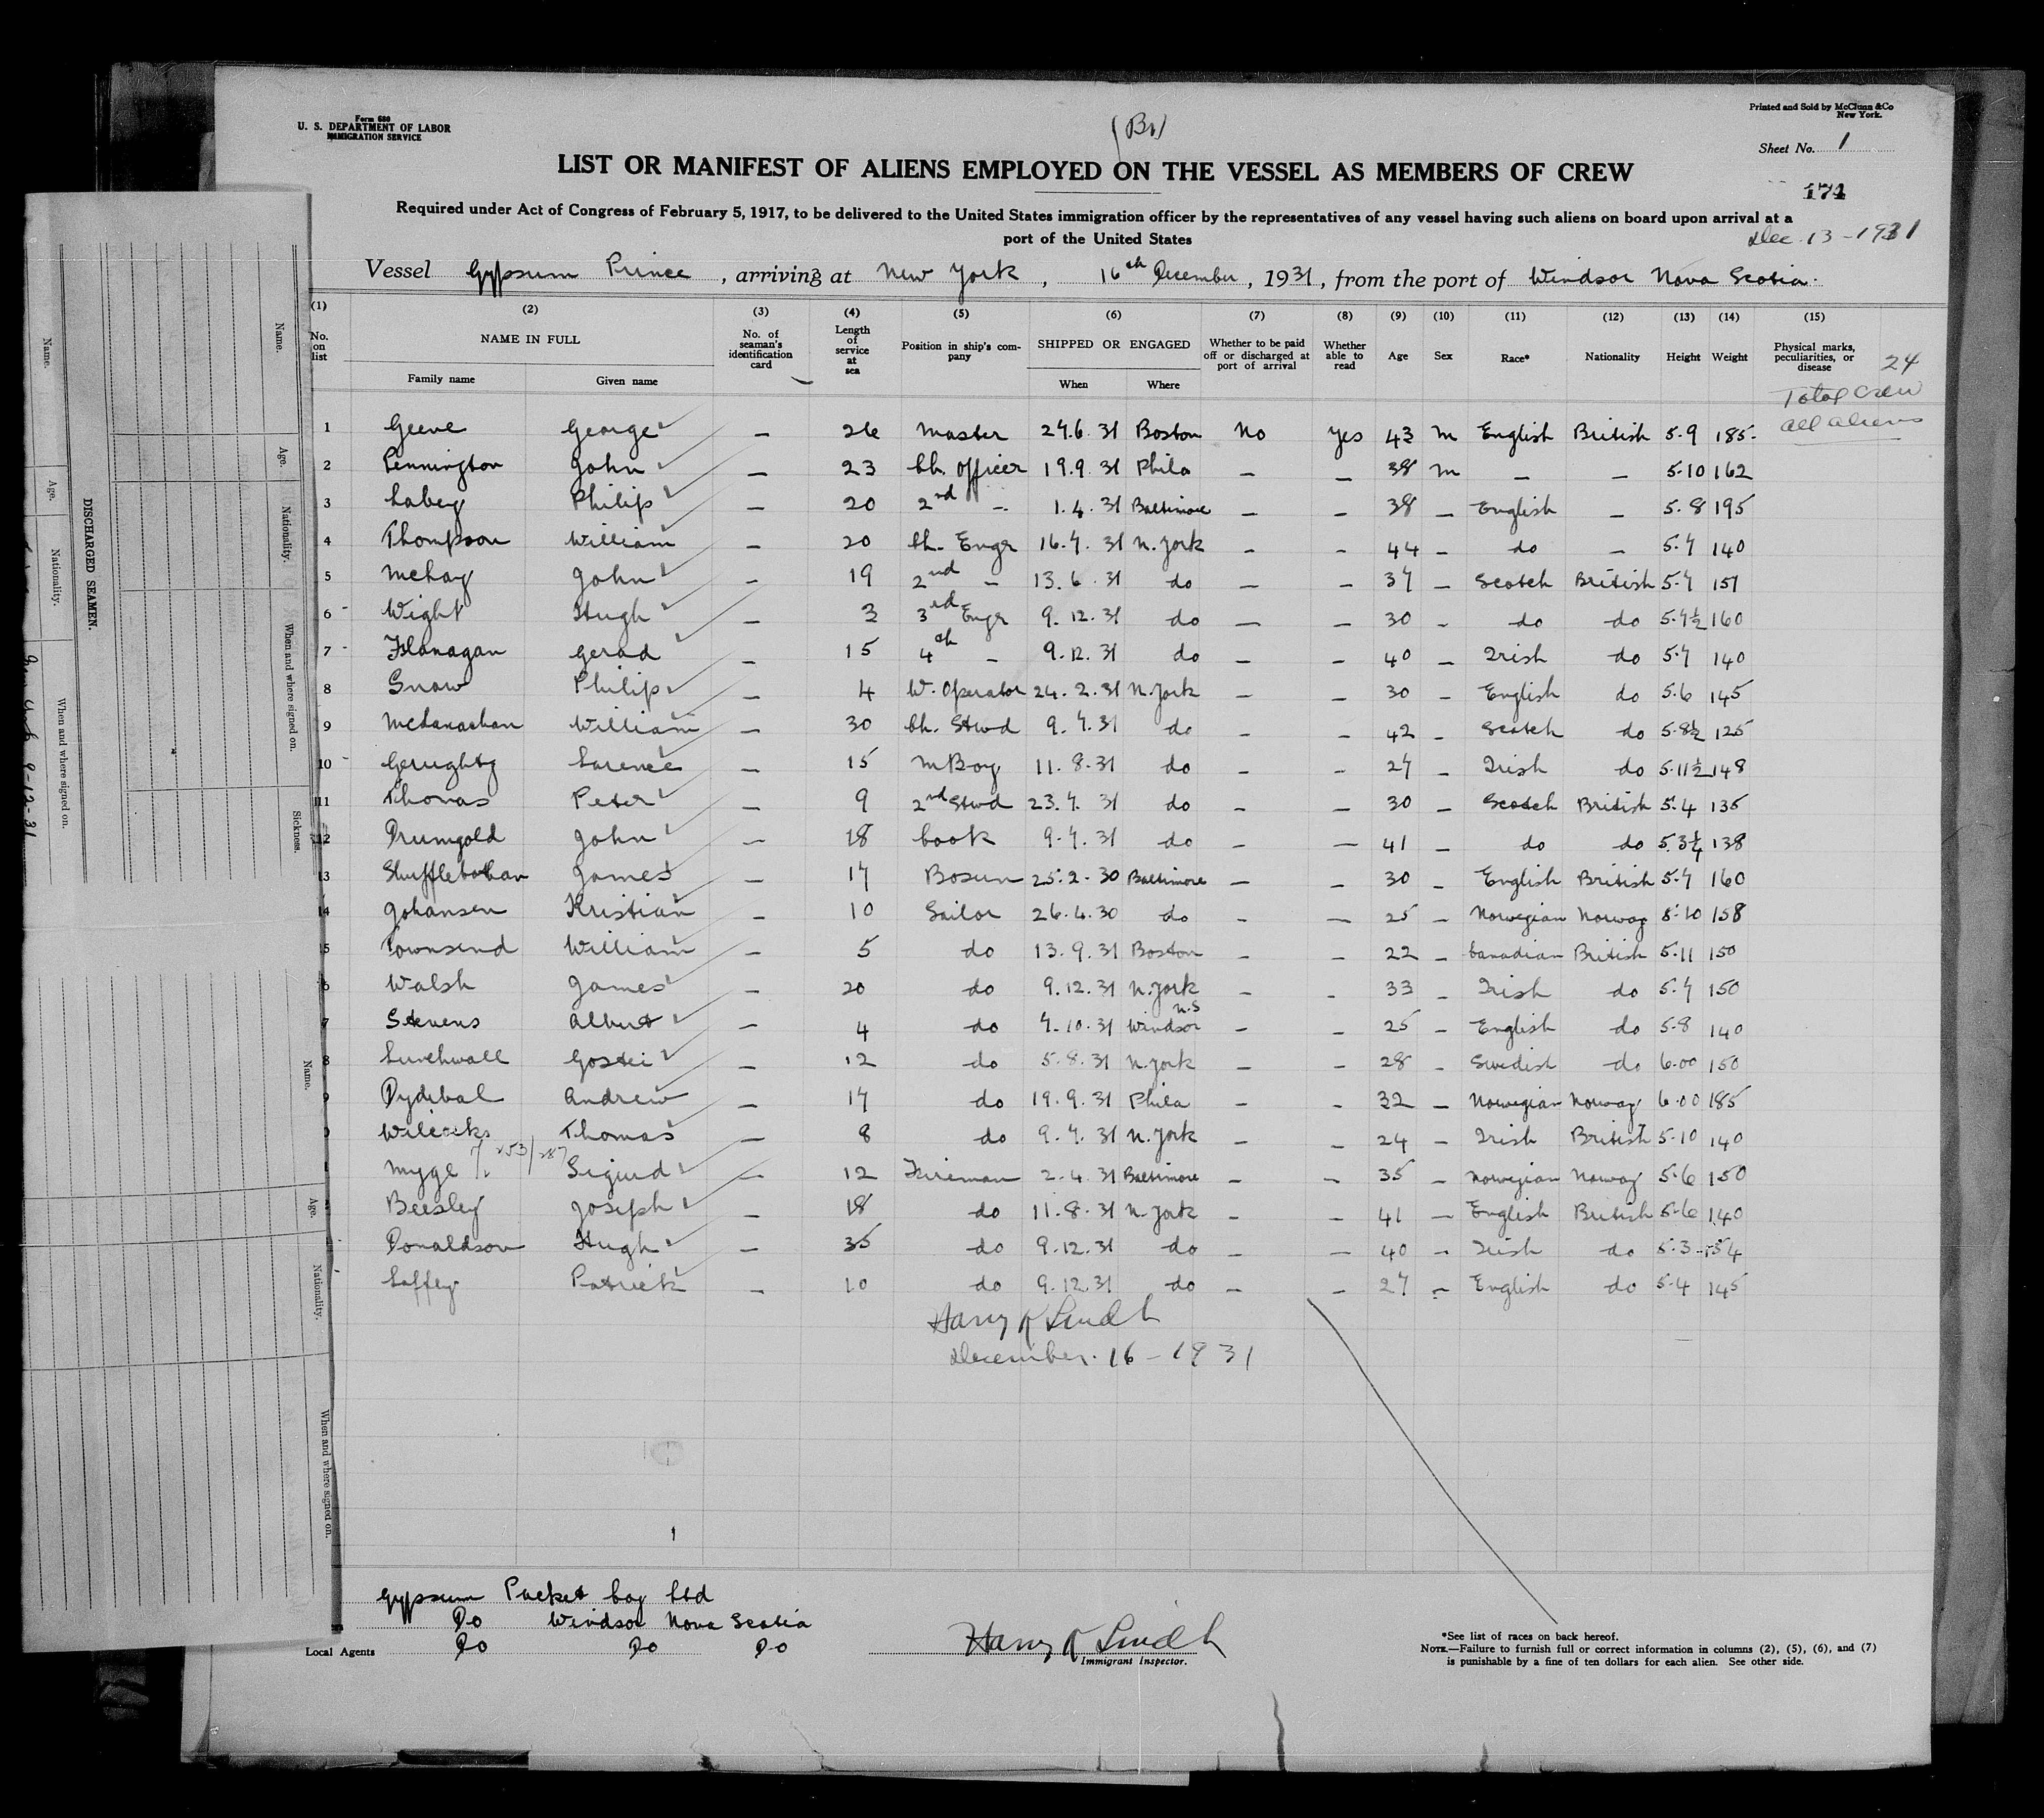 Form 680
U. S. DEPARTMENT OF LABOR
IMMIGRATION SERVICE
(Br)
Printed and Sold by McClunn & Co
New York.
Sheet No. 1
LIST OR MANIFEST OF ALIENS EMPLOYED ON THE VESSEL AS MEMBERS OF CREW
171
Required under Act of Congress of February 5, 1917, to be delivered to the United States immigration officer by the representatives of any vessel having such aliens on board upon arrival at a
port of the United States
Dec. 13 - 1931
Vessel Gypsum Prince, arriving at New York, 16th December, 1931, from the port of Windsor Nova Scotia.
(1) (2) (3) (4) (5) (6) (7) (8) (9) (10) (11) (12) (13) (14) (15)
No. on list NAME IN FULL No. of seaman's identification card Length of service at sea Position in ship's company SHIPPED OR ENGAGED Whether to be paid off or discharged at port of arrival Whether able to read Age Sex Race* Nationality Height Weight Physical marks, peculiarities, or disease
Family name Given name When Where
24
Total crew
all aliens
1 Geeve George — 26 Master 27.6.31 Boston No Yes 43 M English British 5.9 185
2 Pennington John — 23 Ch. Officer 19.9.31 Phila — — 38 M — — 5.10 162
3 Labey Philip — 20 2nd — 1.4.31 Baltimore — — 38 — English — 5.8 195
4 Thompson William — 20 Ch. Engr 16.7.31 N. York — — 44 — do — 5.7 140
5 McKay John — 19 2nd — 13.6.31 do — — 37 — Scotch British 5.7 151
6 Wight Hugh — 3 3rd Engr 9.12.31 do — — 30 — do do 5.7½ 160
7 Flanagan Gerad — 15 4th — 9.12.31 do — — 40 — Irish do 5.7 140
8 Snow Philip — 4 W. Operator 24.2.31 N. York — — 30 — English do 5.6 145
9 McLanachan William — 30 Ch. Stwd 9.7.31 do — — 42 — Scotch do 5.8½ 125
10 Gerughty Larence — 15 M Boy 11.8.31 do — — 27 — Irish do 5.11½ 148
11 Thomas Peter — 9 2nd Stwd 23.7.31 do — — 30 — Scotch British 5.4 135
12 Drumgold John — 18 Cook 9.7.31 do — — 41 — do do 5.3¼ 138
13 Shufflebothan James — 17 Bosun 25.2.30 Baltimore — — 30 — English British 5.7 160
14 Johansen Kristian — 10 Sailor 26.4.30 do — — 25 — Norwegian Norway 5.10 158
5 Townsend William — 5 do 13.9.31 Boston — — 22 — Canadian British 5.11 150
6 Walsh James — 20 do 9.12.31 N. York — — 33 — Irish do 5.7 150
7 Stevens Albert — 4 do 7.10.31 Windsor N.S — — 25 — English do 5.8 140
8 Lunchwall Gostei — 12 do 5.8.31 N. York — — 28 — Swedish do 6.00 150
9 Dydibal Andrew — 17 do 19.9.31 Phila — — 32 — Norwegian Norway 6.00 185
Wilcocks Thomas — 8 do 9.7.31 N. York — — 24 — Irish British 5.10 140
Myge Sigurd — 12 Fireman 2.4.31 Baltimore — — 35 — Norwegian Norway 5.6 150
Beesley Joseph — 18 do 11.8.31 N. York — — 41 — English British 5.6 140
Donaldson Hugh — 35 do 9.12.31 do — — 40 — Irish do 5.3 154
Laffey Patrick — 10 do 9.12.31 do — — 27 — English do 5.4 145
Harry R Lindh
December. 16 - 1931
Gypsum Packet Coy Ltd
Do Windsor Nova Scotia
Local Agents Do Do Do
Harry R Lindh
Immigrant Inspector.
*See list of races on back hereof.
NOTE.—Failure to furnish full or correct information in columns (2), (5), (6), and (7)
is punishable by a fine of ten dollars for each alien. See other side.
DISCHARGED SEAMEN.
Name. Age. Nationality. When and where signed on.
Name. Age. Nationality. When and where signed on. Sickness.
Name. Age. Nationality. When and where signed on.
9-12-31